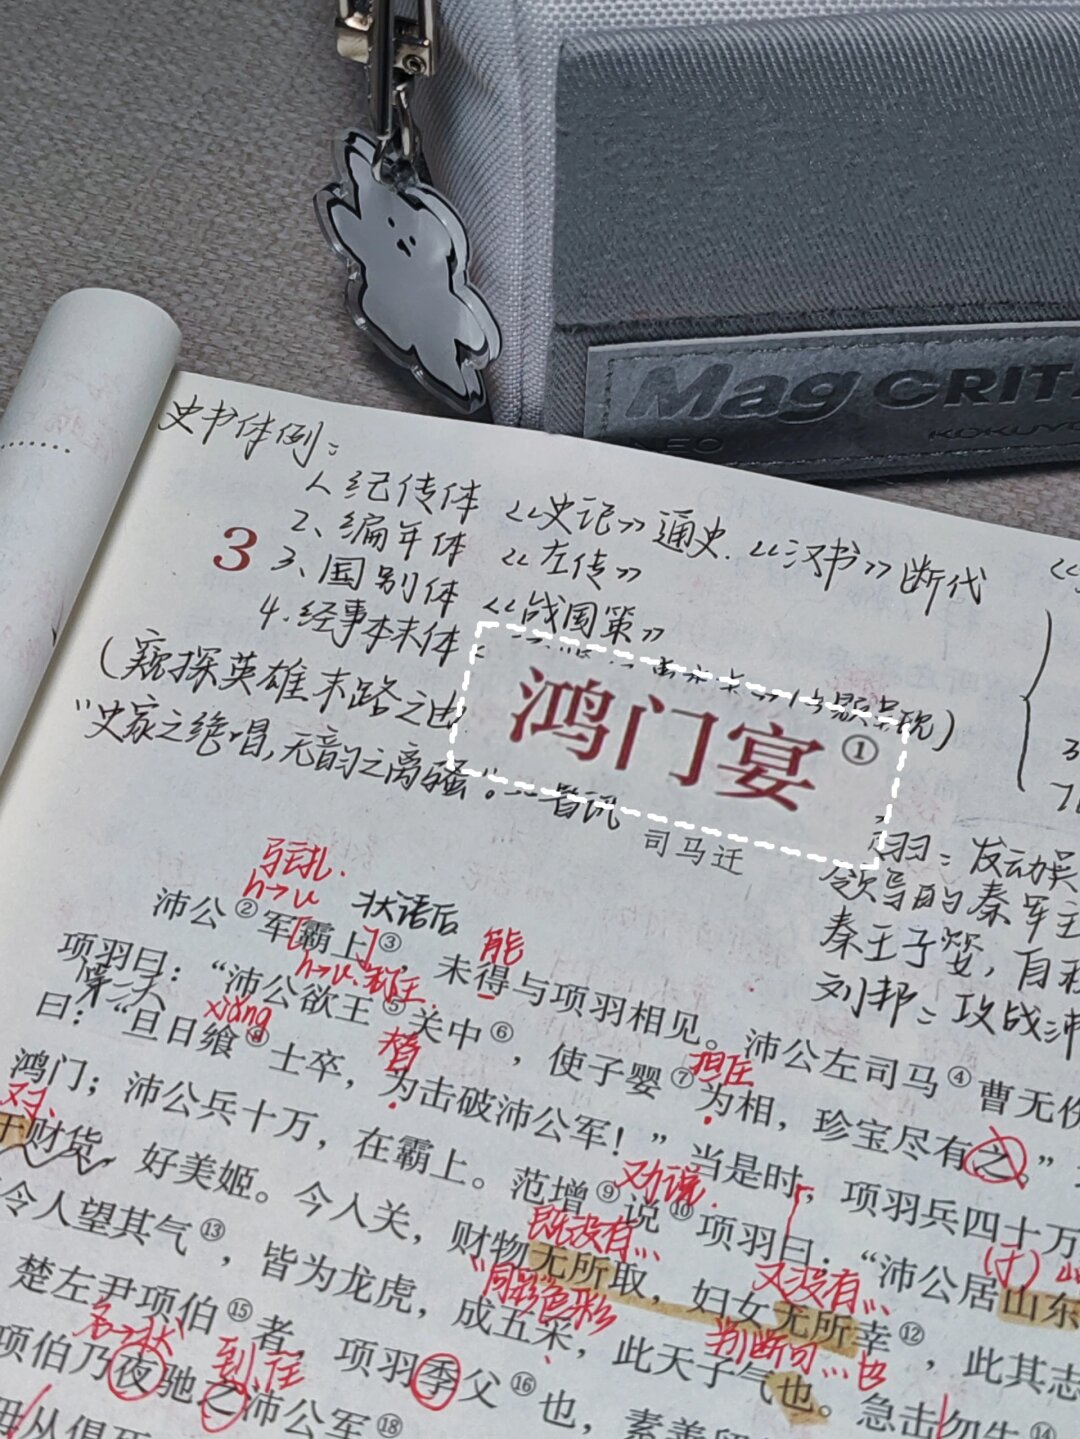 Mag CRIT
NEO
KOKUYO
史书体例：
1、纪传体 《史记》通史.《汉书》断代
2、编年体 《左传》
3
3、国别体 《战国策》
4.经事本末体：
(窥探英雄末路之由
鸿门宴①
"史家之绝唱,无韵之离骚"。--鲁迅
司马迁
羽：发动
领导的秦军主
秦王子婴，自
刘邦：攻战沛
驻扎.
n→u 状语后
沛公②军[霸上]③，未得与项羽相见。沛公左司马④曹无伤
能
n→u.称王.
项羽曰：“沛公欲王⑤关中⑥，使子婴⑦为相，珍宝尽有之。”
第二天
xiǎng
替
担任
曰：“旦日飨⑧士卒，为击破沛公军！”当是时，项羽兵四十万
鸿门；沛公兵十万，在霸上。范增⑨说⑩项羽曰：“沛公居山东
劝说.
对、
于财货，好美姬。今人关，财物无所取，妇女无所幸⑫，此其志
既没有…
又没有…
令人望其气⑬，皆为龙虎，成五采，此天子气也。急击勿失⑭
"同彩"色彩
判断句…也
楚左尹项伯⑮者，项羽季父⑯也，素善留
名→状
到.往
项伯乃夜驰之沛公军⑱
毋从俱死